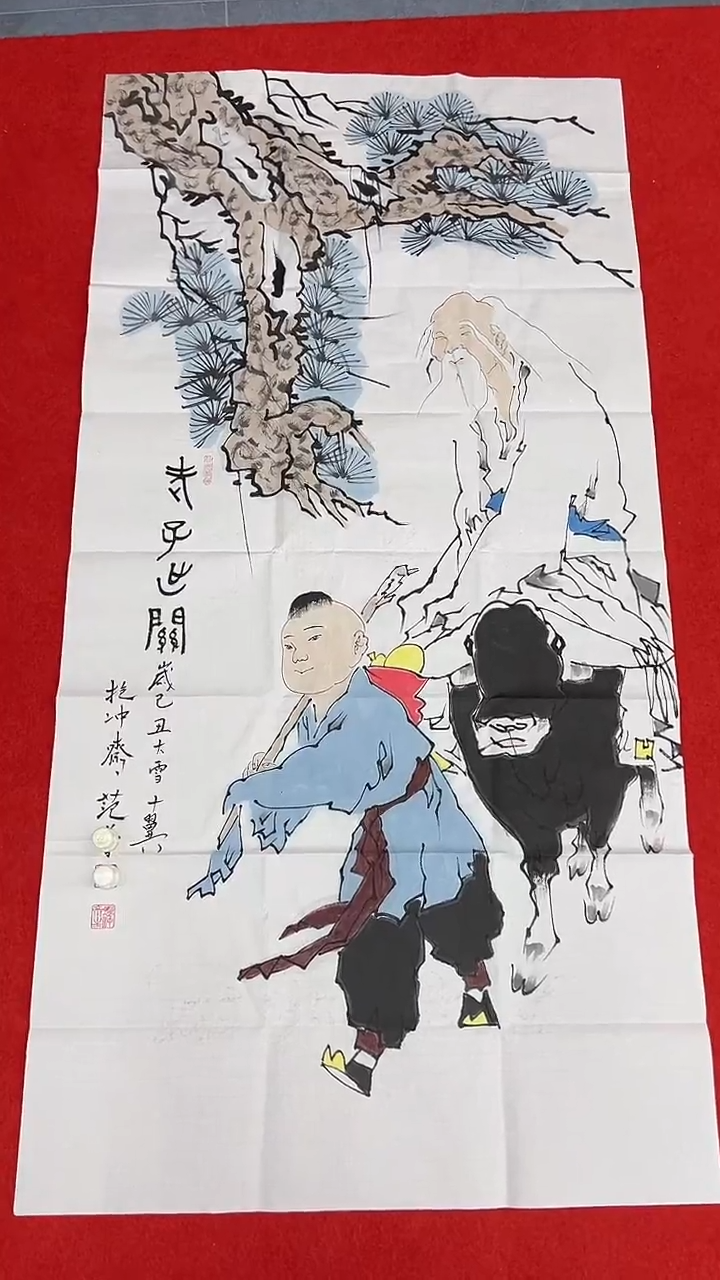 老子出關歲己丑大雪十翼
抱冲齋范